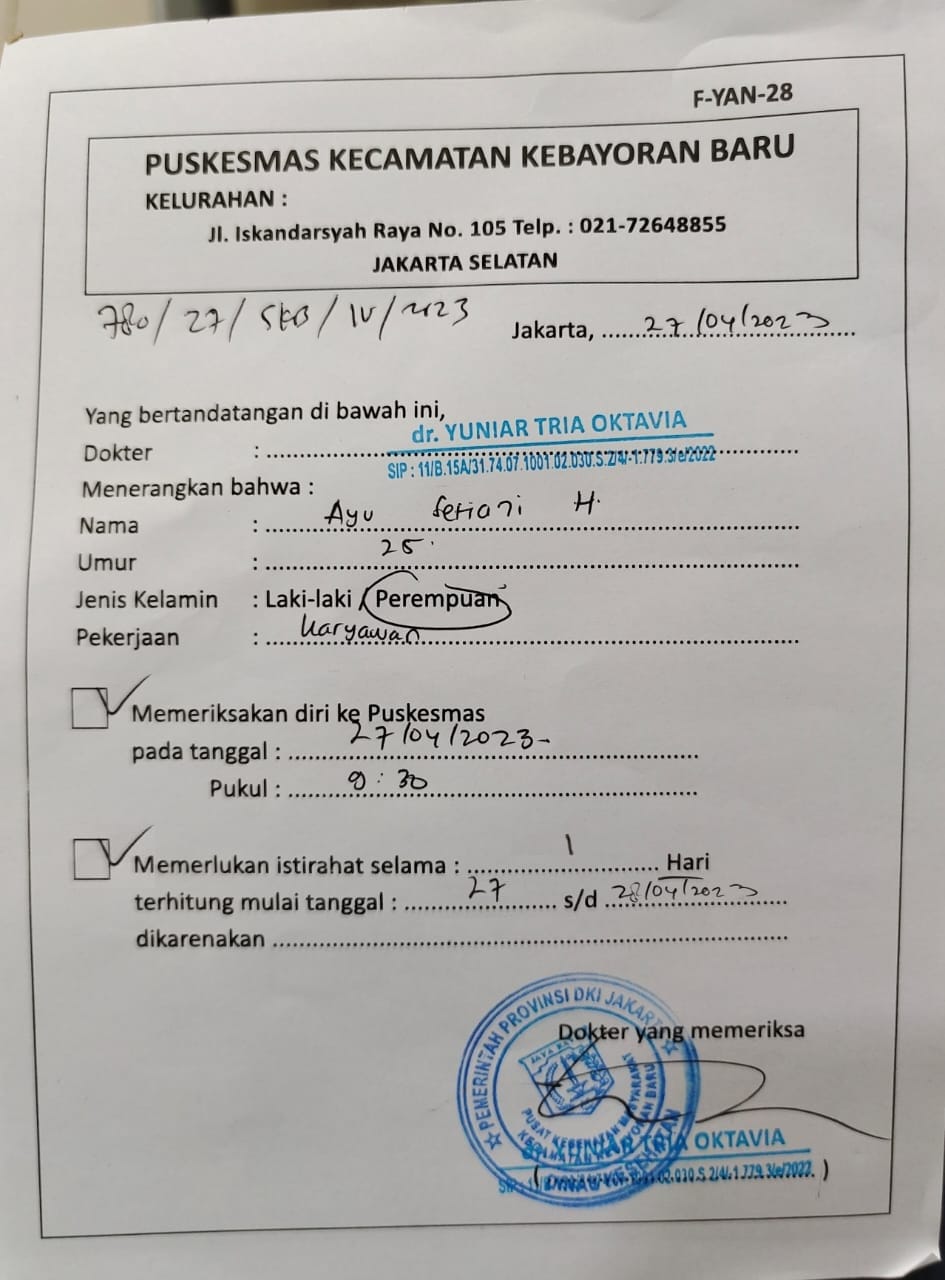 F-YAN-28
PUSKESMAS KECAMATAN KEBAYORAN BARU
KELURAHAN :
Jl. Iskandarsyah Raya No. 105 Telp. : 021-72648855
JAKARTA SELATAN
780/27/SKB/IV/2023
Jakarta, ......27/04/2023......
Yang bertandatangan di bawah ini,
dr. YUNIAR TRIA OKTAVIA
Dokter : ....................
SIP : 11/B.15A/31.74.07.1001.02.030.S.2/4/-1.779.3/e/2022
Menerangkan bahwa :
Nama : Ayu Setiani H.
Umur : 25
Jenis Kelamin : Laki-laki / Perempuan
Pekerjaan : Karyawan
Memeriksakan diri ke Puskesmas
pada tanggal : 27/04/2023
Pukul : 9:30
Memerlukan istirahat selama : 1 Hari
terhitung mulai tanggal : 27 s/d 28/04/2023
dikarenakan ....................
PEMERINTAH PROVINSI DKI JAKARTA
Dokter yang memeriksa
JAYA RAYA
PUSAT KESEHATAN MASYARAKAT
KECAMATAN KEBAYORAN BARU
DINAS KESEHATAN
YUNIAR TRIA OKTAVIA
( )